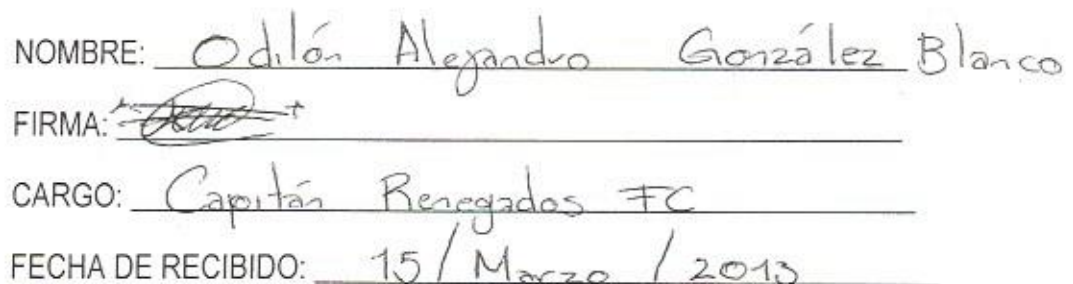 NOMBRE: Odilón Alejandro González Blanco
FIRMA:
CARGO: Capitán Renegados FC
FECHA DE RECIBIDO: 15/Marzo/2013